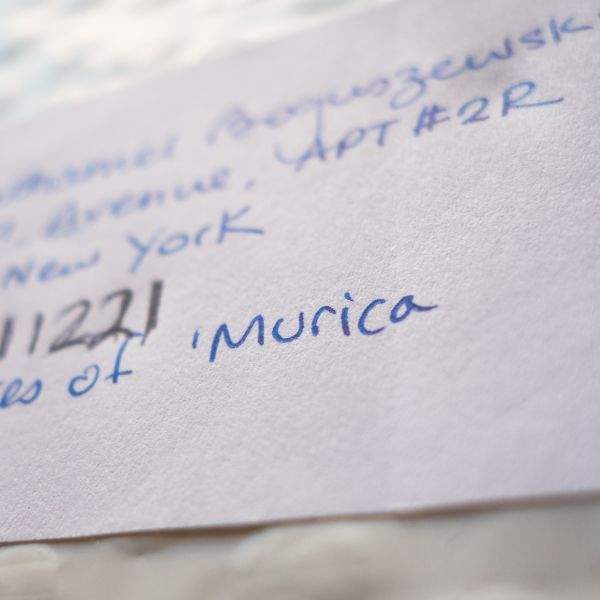 Boguszewski
Avenue, APT #2R
New York
11221
es of 'Murica